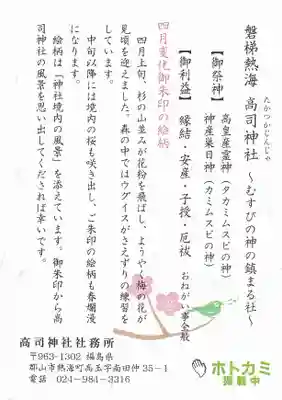 磐梯熱海 高司神社 ～むすびの神の鎮まる社～
たかつかじんじゃ
【御祭神】
高皇産霊神(タカミムスビの神)
神産巣日神(カミムスビの神)
【御利益】 縁結・安産・子授・厄祓 おねがい事全般
四月変化御朱印の絵柄
四月上旬、杉の山並みが花粉を飛ばし、ようやく梅の花が
見頃を迎えました。森の中ではウグイスがさえずりの練習を
しています。
中旬以降には境内の桜も咲き出し、ご朱印の絵柄も春爛漫
になります。
絵柄は「神社境内の風景」を添えています。御朱印から高
司神社の風景を思い出してくだされば幸いです。
高司神社社務所
〒963-1302 福島県
郡山市熱海町高玉字南田仲35-1
電話 024-984-3316
ホトカミ
掲載中